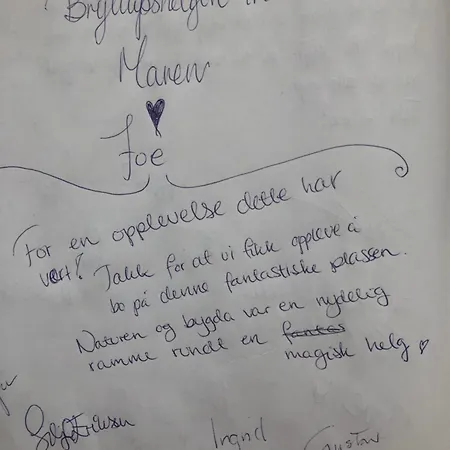 Bryllupshelgen til
Maren
♥
Joe
For en opplevelse dette har
vært! Takk for at vi fikk oppleve å
bo på denne fantastiske plassen.
Naturen og bygda var en nydelig
ramme rundt en fantas
magisk helg ♥
Eriksen
Ingrid
Gustav